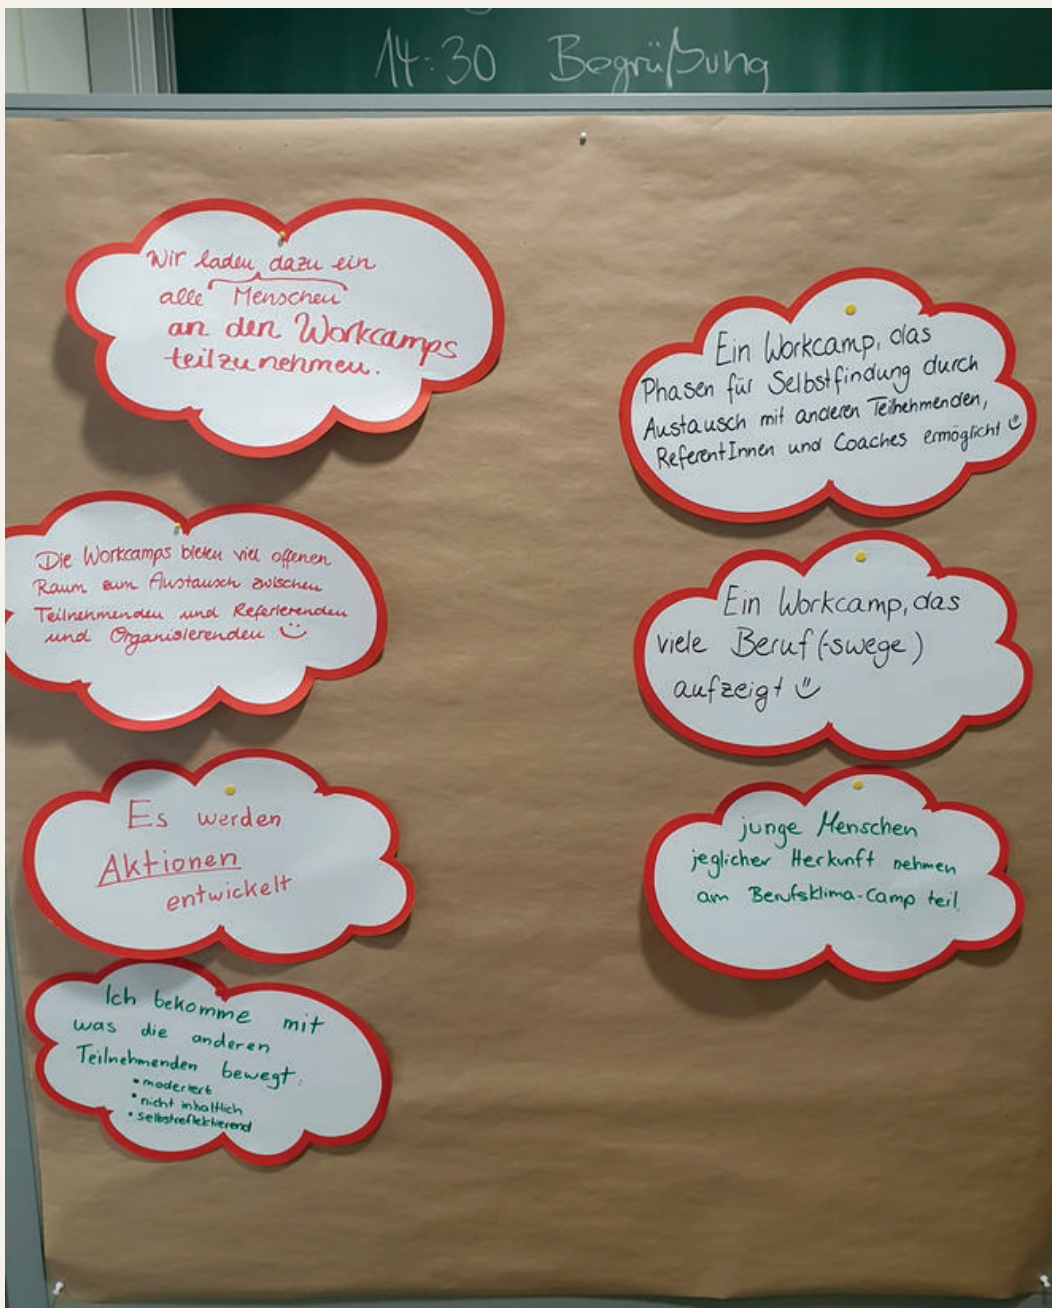 14:30 Begrüßung
Wir laden dazu ein
alle Menschen
an den Workcamps
teilzunehmen.
Die Workcamps bieten viel offenen
Raum zum Austausch zwischen
Teilnehmenden und Referierenden
und Organisierenden
Es werden
Aktionen
entwickelt
Ich bekomme mit
was die anderen
Teilnehmenden bewegt:
• moderiert
• nicht inhaltlich
• selbstreflektierend
Ein Workcamp, das
Phasen für Selbstfindung durch
Austausch mit anderen Teilnehmenden,
ReferentInnen und Coaches ermöglicht
Ein Workcamp, das
viele Beruf(-swege)
aufzeigt
junge Menschen
jeglicher Herkunft nehmen
am Berufsklima-Camp teil.